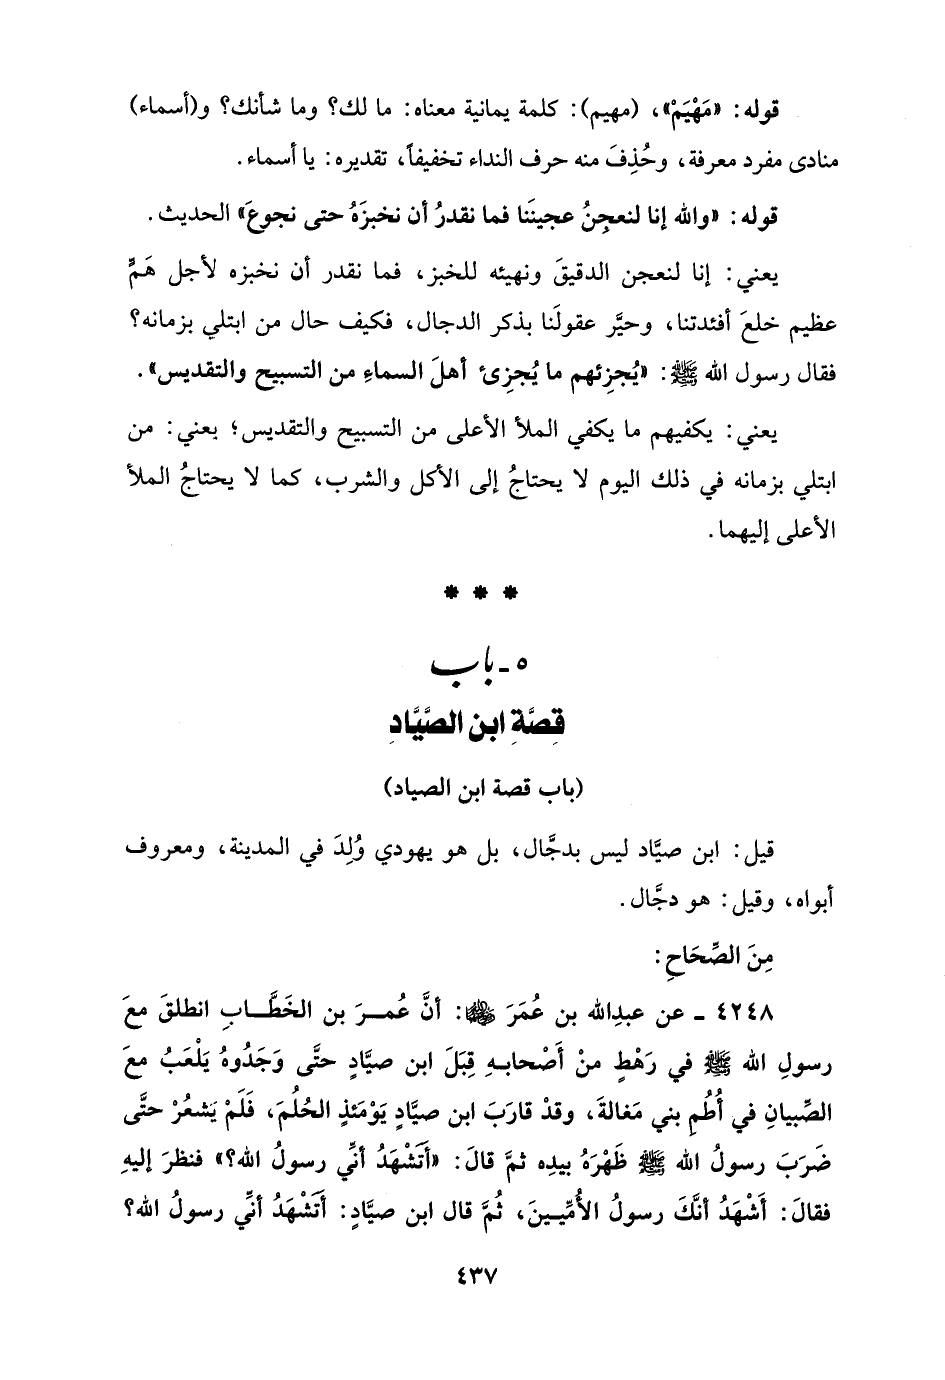 قوله: «مَهْيَمْ»، (مهيم): كلمة يمانية معناه: ما لك؟ وما شأنك؟ و(أسماء)
منادى مفرد معرفة، وحُذِفَ منه حرف النداء تخفيفاً، تقديره: يا أسماء.
قوله: «والله إنا لنعجِنُ عجينَنا فما نقدرُ أن نخبزَهُ حتى نجوعَ» الحديث.
يعني: إنا لنعجن الدقيقَ ونهيئه للخبز، فما نقدر أن نخبزه لأجل هَمٍّ
عظيم خلعَ أفئدتنا، وحيَّر عقولَنا بذكر الدجال، فكيف حال من ابتلي بزمانه؟
فقال رسول الله ﷺ: «يُجزِئهم ما يُجزِئ أهلَ السماءِ من التسبيح والتقديس».
يعني: يكفيهم ما يكفي الملأ الأعلى من التسبيح والتقديس؛ يعني: من
ابتلي بزمانه في ذلك اليوم لا يحتاجُ إلى الأكل والشرب، كما لا يحتاجُ الملأ
الأعلى إليهما.
* * *
٥ ـ باب
قِصَّةِ ابن الصَّيَّادِ
(باب قصة ابن الصياد)
قيل: ابن صيَّاد ليس بدجَّال، بل هو يهودي وُلِدَ في المدينة، ومعروف
أبواه، وقيل: هو دجَّال.
مِنَ الصِّحَاحِ:
٤٢٤٨ ـ عن عبدِالله بن عُمَرَ ﷺ: أنَّ عُمرَ بن الخَطَّابِ انطلقَ معَ
رسولِ الله ﷺ في رَهْطٍ منْ أَصْحابهِ قِبَلَ ابن صيَّادٍ حتَّى وَجَدُوهُ يَلْعَبُ معَ
الصِّبيانِ في أُطُمِ بني مَغالةَ، وقدْ قارَبَ ابن صيَّادٍ يَوْمَئذٍ الحُلُمَ، فَلَمْ يَشعُرْ حتَّى
ضَرَبَ رسولُ الله ﷺ ظَهْرَهُ بيدِه ثمَّ قالَ: «أَتَشْهَدُ أنِّي رسولُ الله؟» فنظرَ إليهِ
فقالَ: أَشْهَدُ أنَّكَ رسولُ الأُمِّيينَ، ثُمَّ قال ابن صيَّادٍ: أتَشْهَدُ أنِّي رسولُ الله؟
٤٣٧